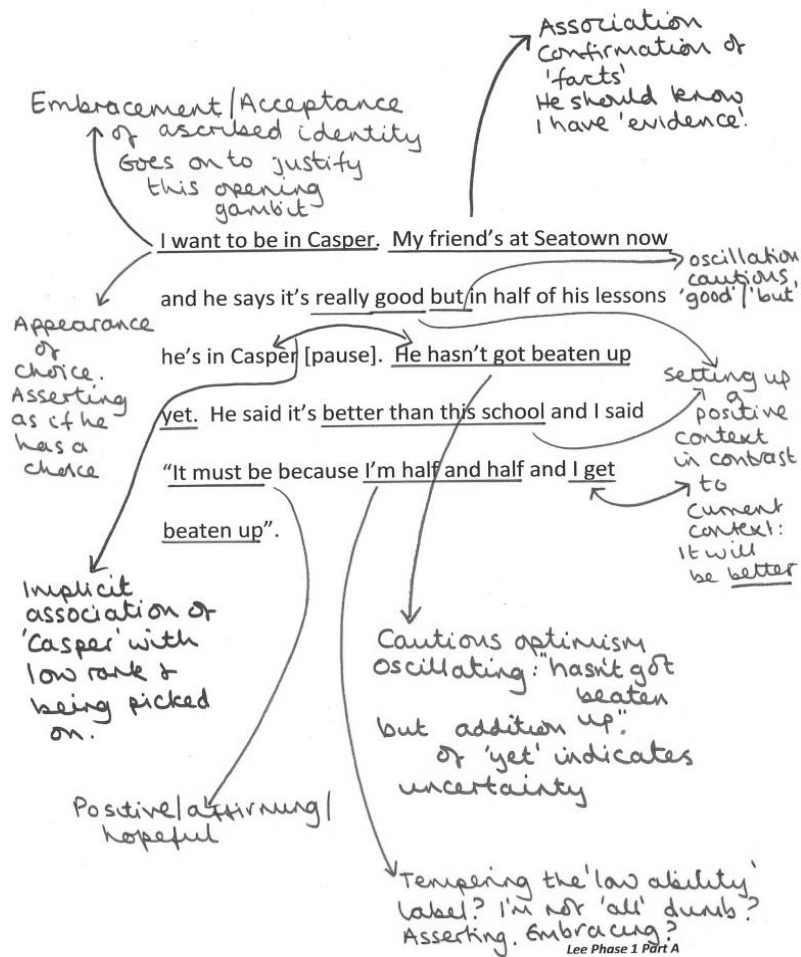 Association
Confirmation of
'facts'
He should know
I have 'evidence'.
Embracement/Acceptance
of ascribed identity
Goes on to justify
this opening
gambit
I want to be in Casper. My friend's at Seatown now
and he says it's really good but in half of his lessons
he's in Casper [pause]. He hasn't got beaten up
yet. He said it's better than this school and I said
"It must be because I'm half and half and I get
beaten up".
oscillation
cautious
'good'/'but'
Appearance
of
choice.
Asserting
as if he
has a
choice
setting up
a
positive
context
in contrast
to
current
context:
It will
be better
Implicit
association of
'Casper' with
low rank &
being picked
on.
Cautious optimism
oscillating: "hasn't got
beaten
up".
but addition
of 'yet' indicates
uncertainty
Positive/affirming/
hopeful
Tempering the 'low ability'
label? I'm not 'all' dumb?
Asserting. Embracing?
Lee Phase 1 Part A